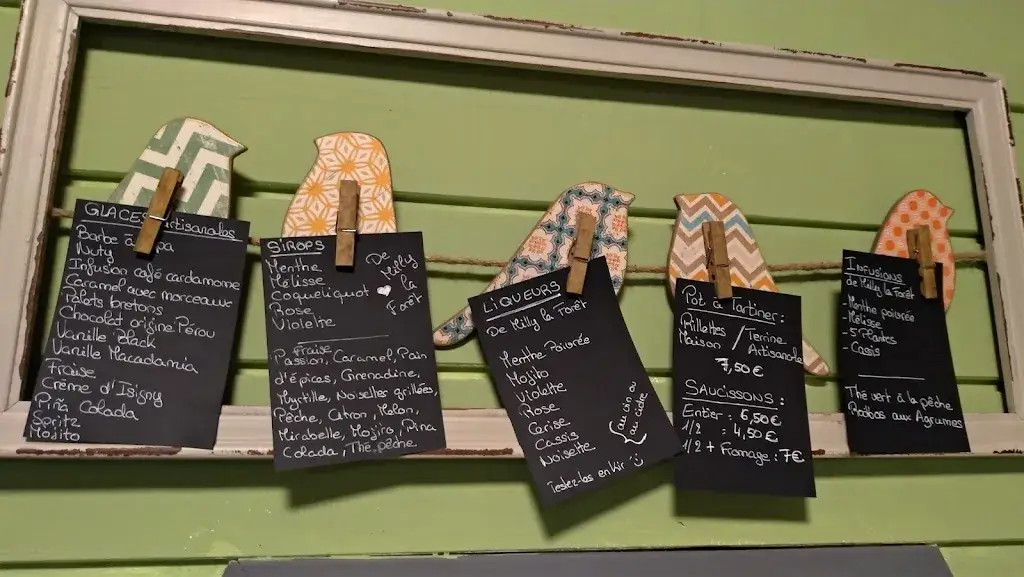 GLACES Artisanales
Barbe à papa
Nuty
Infusion café cardamome
Caramel avec morceaux
Palets bretons
Chocolat origine Pérou
Vanille Black
Vanille Macadamia
Fraise
Crème d'Isigny
Piña Colada
Spritz
Mojito
SIROPS
De Milly la Forêt
Menthe
Mélisse
Coquelicot
Rose
Violette
Fraise
Passion, Caramel, Pain
d'épices, Grenadine,
Myrtille, Noisettes grillées,
Pêche, Citron, Melon,
Mirabelle, Mojito, Pina
Colada, Thé pêche
LIQUEURS
De Milly la Forêt
Menthe Poivrée
Mojito
Violette
Rose
Cerise
Cassis
Noisette
(au vin ou
au cidre)
Testez-les en kir :)
Pot à Tartiner :
Rillettes / Terrine
Maison / Artisanale
7,50€
SAUCISSONS :
Entier : 6,50€
1/2 : 4,50€
1/2 + Fromage : 7€
INFUSIONS
de Milly la Forêt
Menthe poivrée
- Mélisse
- 5 Plantes
- Cassis
Thé vert à la pêche
Rooibos aux Agrumes